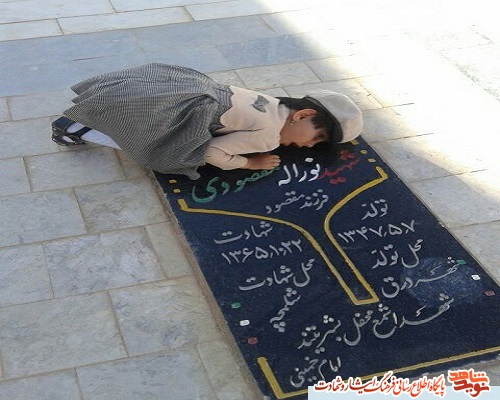 شهید نوراله مقصودی
فرزند مقصود
تولد
۱۳۴۷،۵،۷
محل تولد
شهر ورق
شهادت
۱۳۶۵،۱۰،۲۲
محل شهادت
شلمچه
شهدا شمع محفل بشریتند
امام خمینی
پایگاه اطلاع رسانی فرهنگ ایثار و شهادت
نوید شاهد